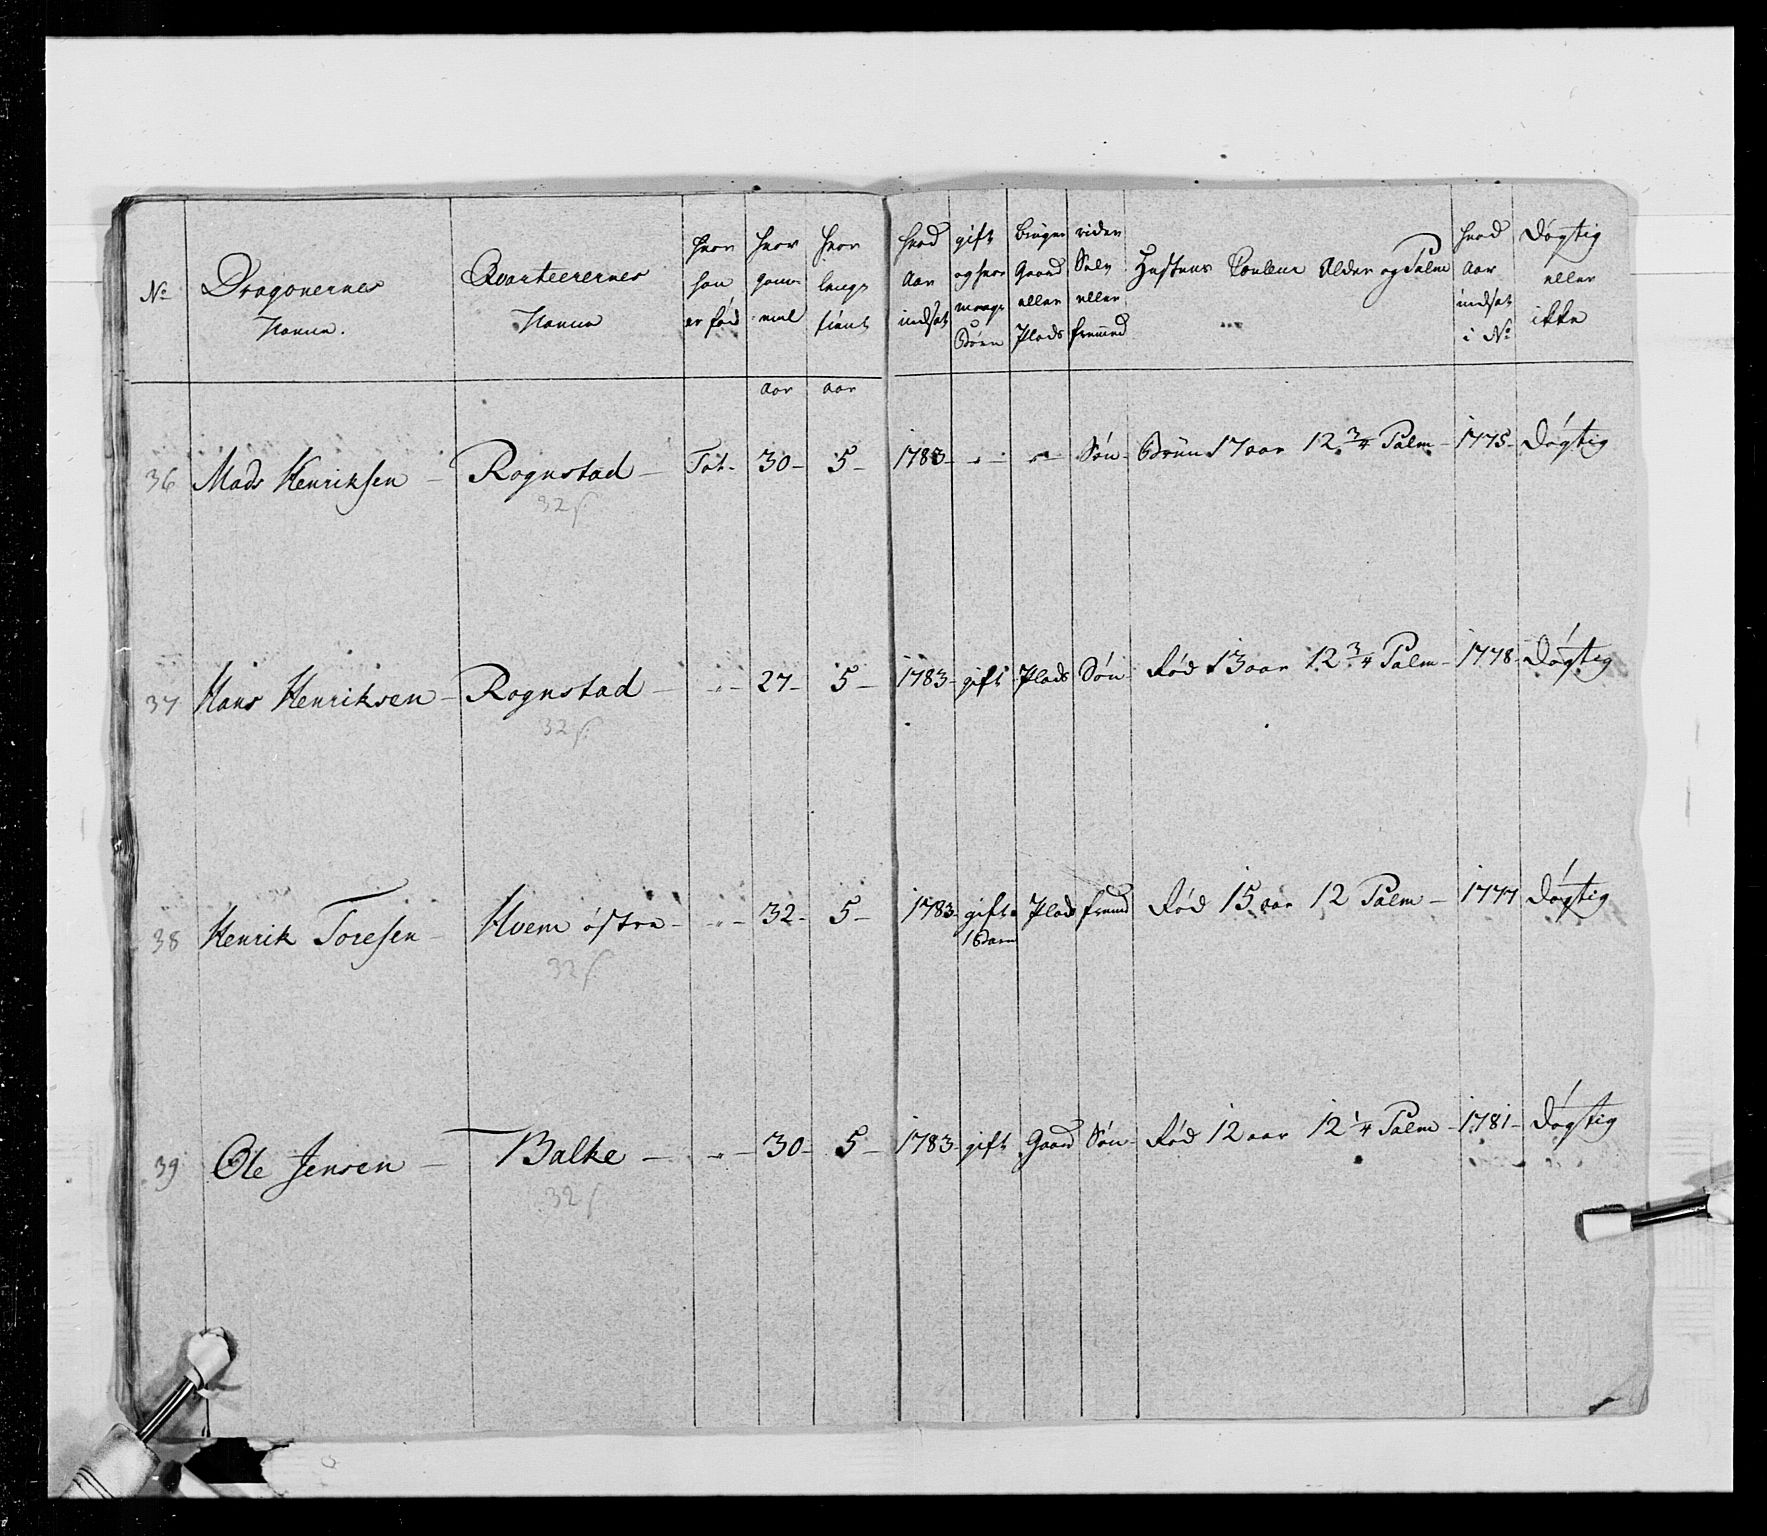 No Dragonernes Navne. Qvarteerernes Navne hvor han er föd hvor gam- mel hvor længe tient hvad Aar indsat gift og hvor mange Börn bruger Gaard eller Plads rider Selv eller fremmed Hestens Couleur Alder og Palm hvad Aar indsat i No Døgtig eller ikke
Aar Aar
36 Mads Henriksen – Rognstad – Tot- 30- 5- 1783- -"- -"- Søn- Brun 17 aar 12 3/4 Palm- 1775- Døgtig
32 s.
37 Hans Henriksen – Rognstad – -"- 27- 5- 1783- gift Plads Søn- Rød 13 aar 12 3/4 Palm- 1778- Døgtig
32 s.
38 Henrik Toresen – Hvem østre- -"- 32- 5- 1783- gift Plads fremd Rød 15 aar 12 Palm- 1777 Døgtig
1 Barn
32 s.
39 Ole Jensen – Balke – -"- 30- 5- 1783- gift Gaard Søn- Rød 12 aar 12 1/4 Palm- 1781- Døgtig
32 s.